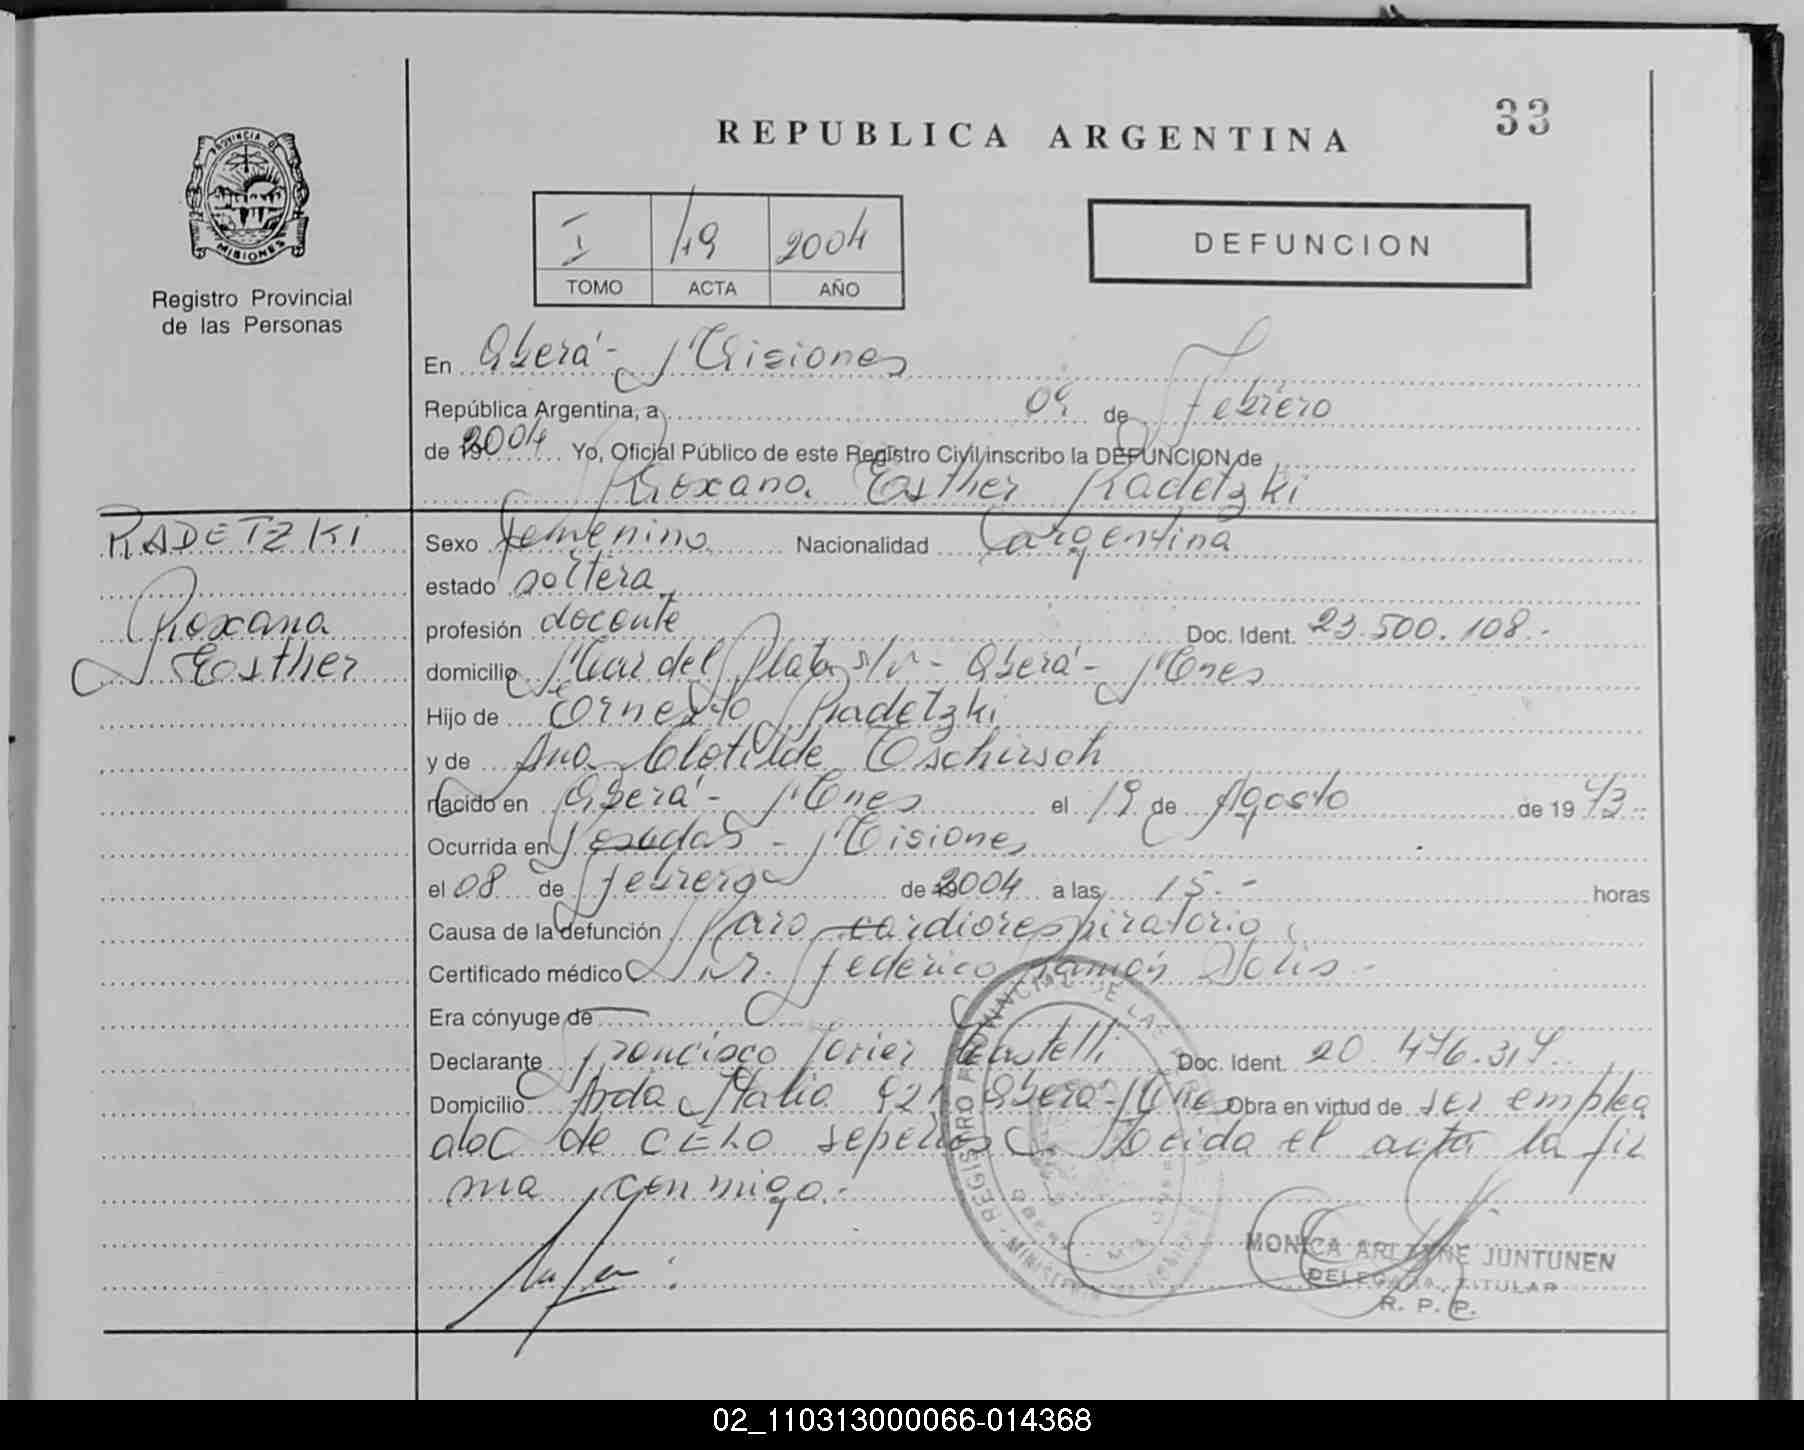 33
REPUBLICA ARGENTINA
PROVINCIA DE
MISIONES
Registro Provincial
de las Personas
I 49 2004
TOMO ACTA AÑO
DEFUNCION
En Oberá - Misiones
República Argentina, a 09 de Febrero
de 192004 Yo, Oficial Público de este Registro Civil inscribo la DEFUNCION de
Roxana Esther Radetzki
RADETZKI
Roxana
Esther
Sexo femenino Nacionalidad argentina
estado soltera
profesión docente Doc. Ident. 23.500.108.-
domicilio Mar del Plata s/n - Oberá - Mnes
Hijo de Ernesto Radetzki
y de Ana Clotilde Tschirsch
nacido en Oberá - Mnes el 19 de Agosto de 1973.-
Ocurrida en Posadas - Misiones
el 08 de febrero de 192004 a las 15.- horas
Causa de la defunción Paro cardiorespiratorio
Certificado médico Dr. Federico Ramón Solis -
Era cónyuge de
Declarante Francisco Javier Doc. Ident. 20.476.319.
Domicilio Avda Italia 921 Oberá - Mnes Obra en virtud de ser emplea
do de CELO sepelios Leida el acta la fir
ma conmigo.-
MONICA ARLENNE JUNTUNEN
DELEGADA TITULAR
R. P. P.
02_110313000066-014368